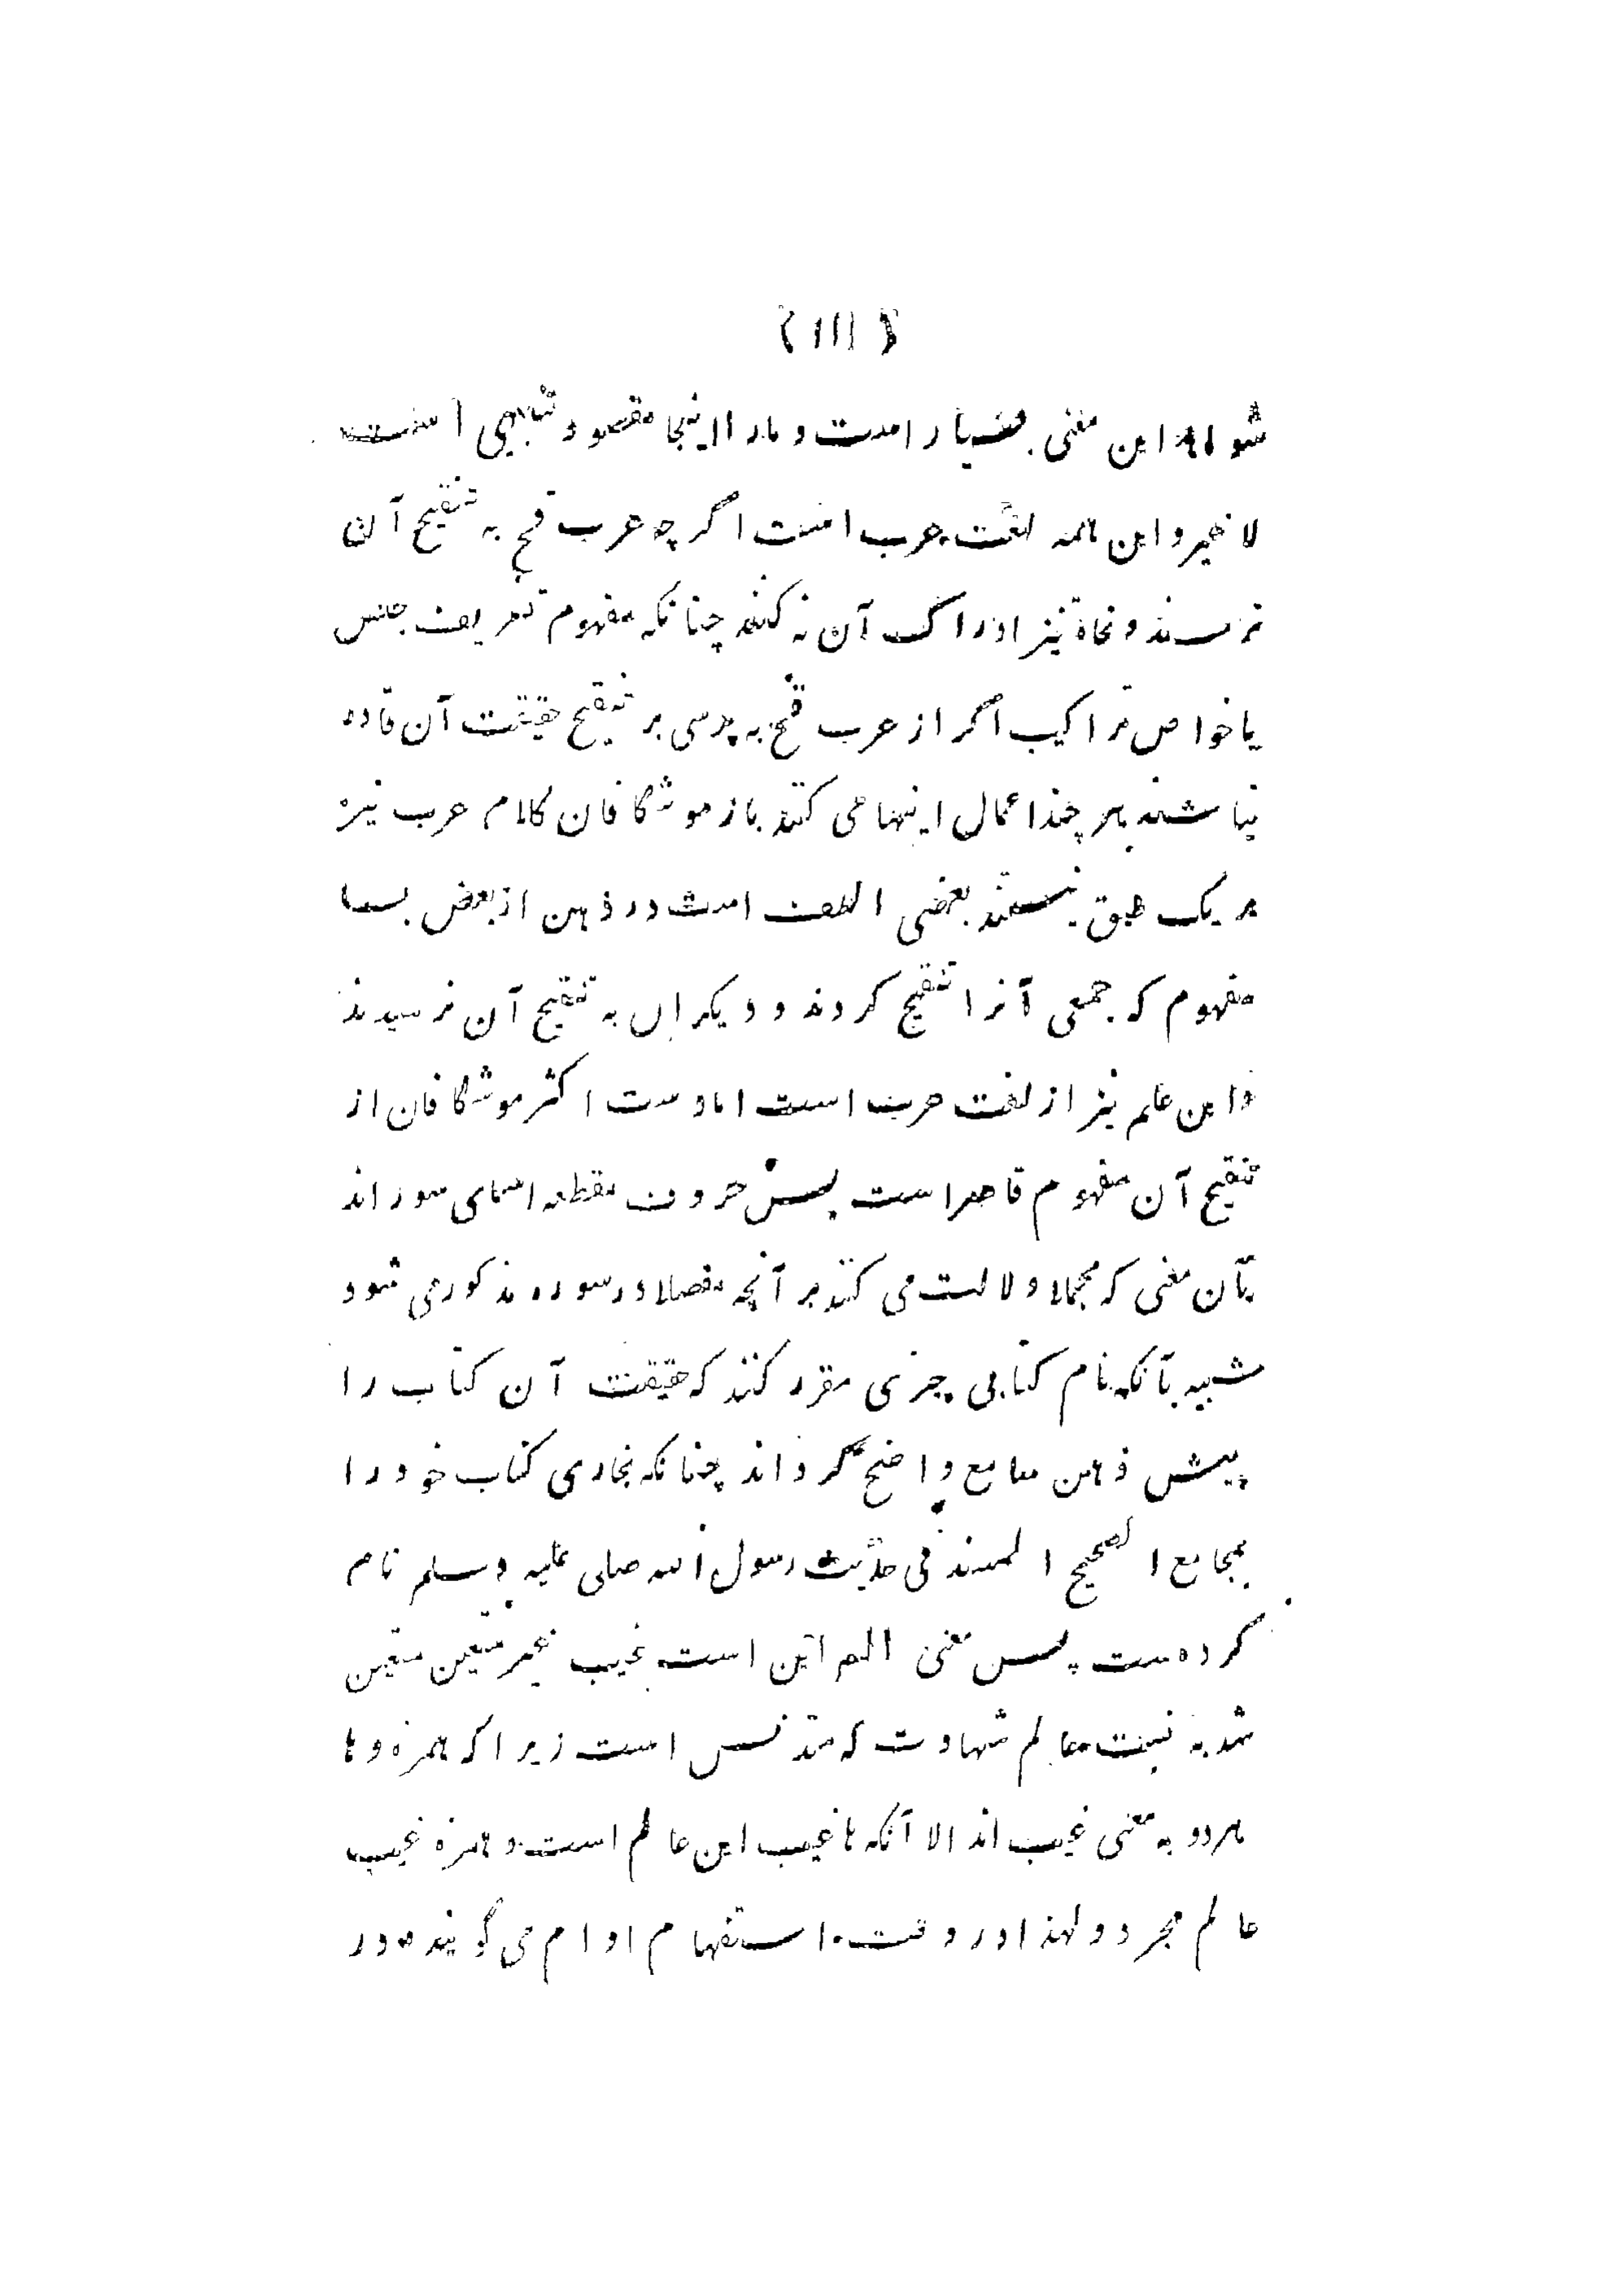 ( ۱۱۱ )
شواهد این معنی بسیار است و مارا اینجا مقصود تنبیهی است
لا غیر و این همه لغت عرب است اگرچه عرب قح به تنقیح آن
نرسند و نحاة نیز ادراک آن نه کنند چنانکه مفهوم تعریف جنس
یا خواص تراکیب اگر از عرب قح به پرسی بر تنقیح حقیقت آن قادر
نباشند هر چند اعمال اینها می کنند باز موشگافان کلام عرب نیز
بر یک طبق نیستند بعضی الطف است در ذهن از بعض بسا
مفهوم که جمعی آنرا تنقیح کردند و دیگران به تنقیح آن نرسیدند
و این علم نیز از لغت عرب است اما دست اکثر موشگافان از
تنقیح آن مفهوم قاصر است پس حروف مقطعه اسمای سور اند
بآن معنی که مجملا دلالت می کنند بر آنچه مفصلا در سوره مذکور می شود
شبیه بآنکه نام کتابی چیزی مقرر کنند که حقیقت آن کتاب را
پیش ذهن سامع واضح گرداند چنانکه بخاری کتاب خود را
بجامع الصحیح المسند فی حدیث رسول الله صلی علیه وسلم نام
کرده ست پس معنی الم این است غیب غیر متعین متعین
شد به نسبت عالم شهادت که متدنس است زیرا که همزه و ها
هردو به معنی غیب اند الا آنکه ها غیب این عالم است و همزه غیب
عالم مجرد و لهذا در وقت استفهام او ام می گویند و در